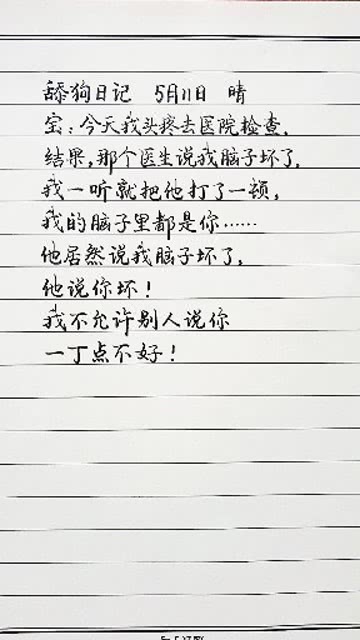 舔狗日记 5月11日 晴
宝:今天我头疼去医院检查,
结果,那个医生说我脑子坏了,
我一听就把他打了一顿,
我的脑子里都是你……
他居然说我脑子坏了,
他说你坏!
我不允许别人说你
一丁点不好!